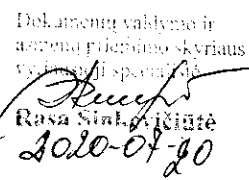 Dokumentų valdymo ir
asmenų priėmimo skyriaus
vyriausioji specialistė
Rasa Sinkevičiūtė
2020-07-20